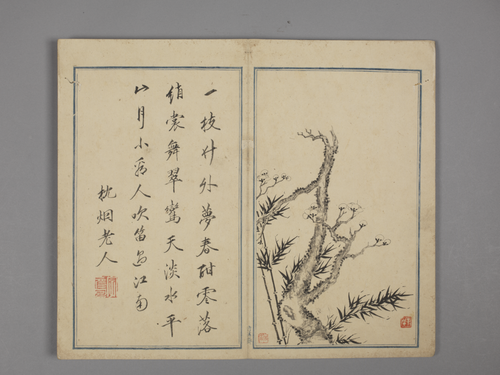 一枝竹外夢春酣零落
綃裳舞翠鸞天淡水平
山月小為人吹笛過江南
枕烟老人